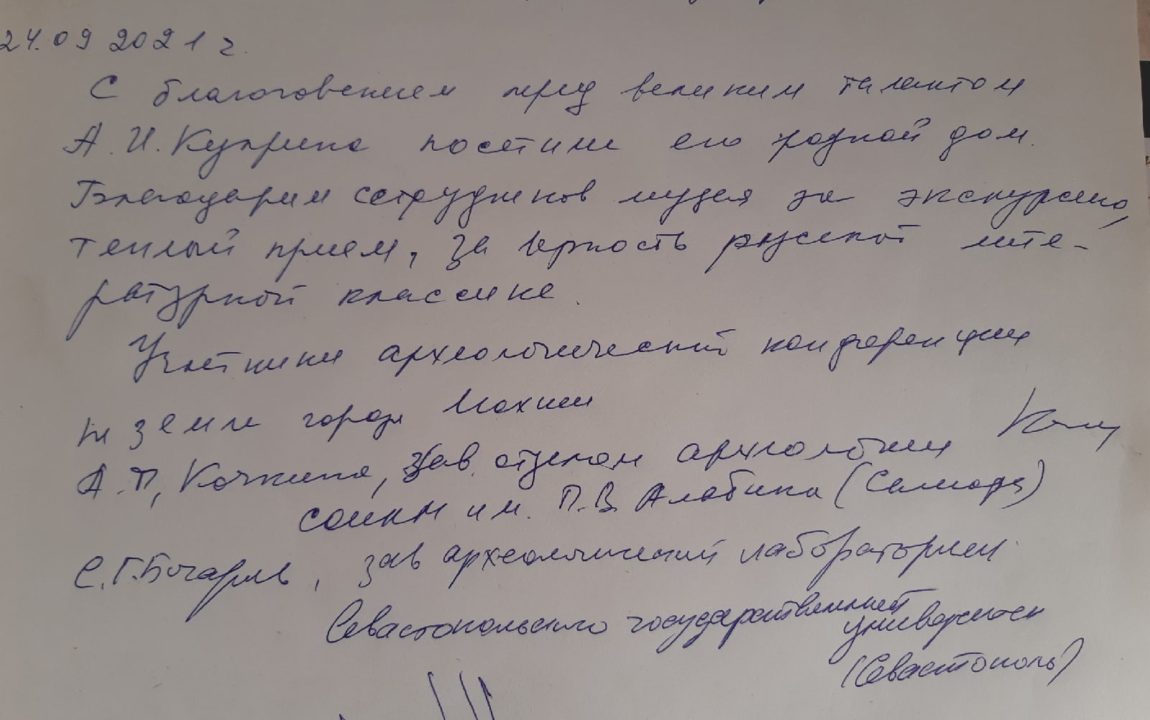 24.09 2021 г.
С благоговением перед великим талантом
А. И. Куприна посетили его родной дом.
Благодарим сотрудников музея за экскурсию,
теплый прием, за верность русской лите-
ратурной классике.
Участники археологической конференции
на земле города Мохши
А. П. Кочкина, зав. отделом археологии
СОИКМ им. П.В. Алабина (Самара)
С.Г. Бочаров, зав археологической лаборатории
Севастопольского государственный
университета
(Севастополь)